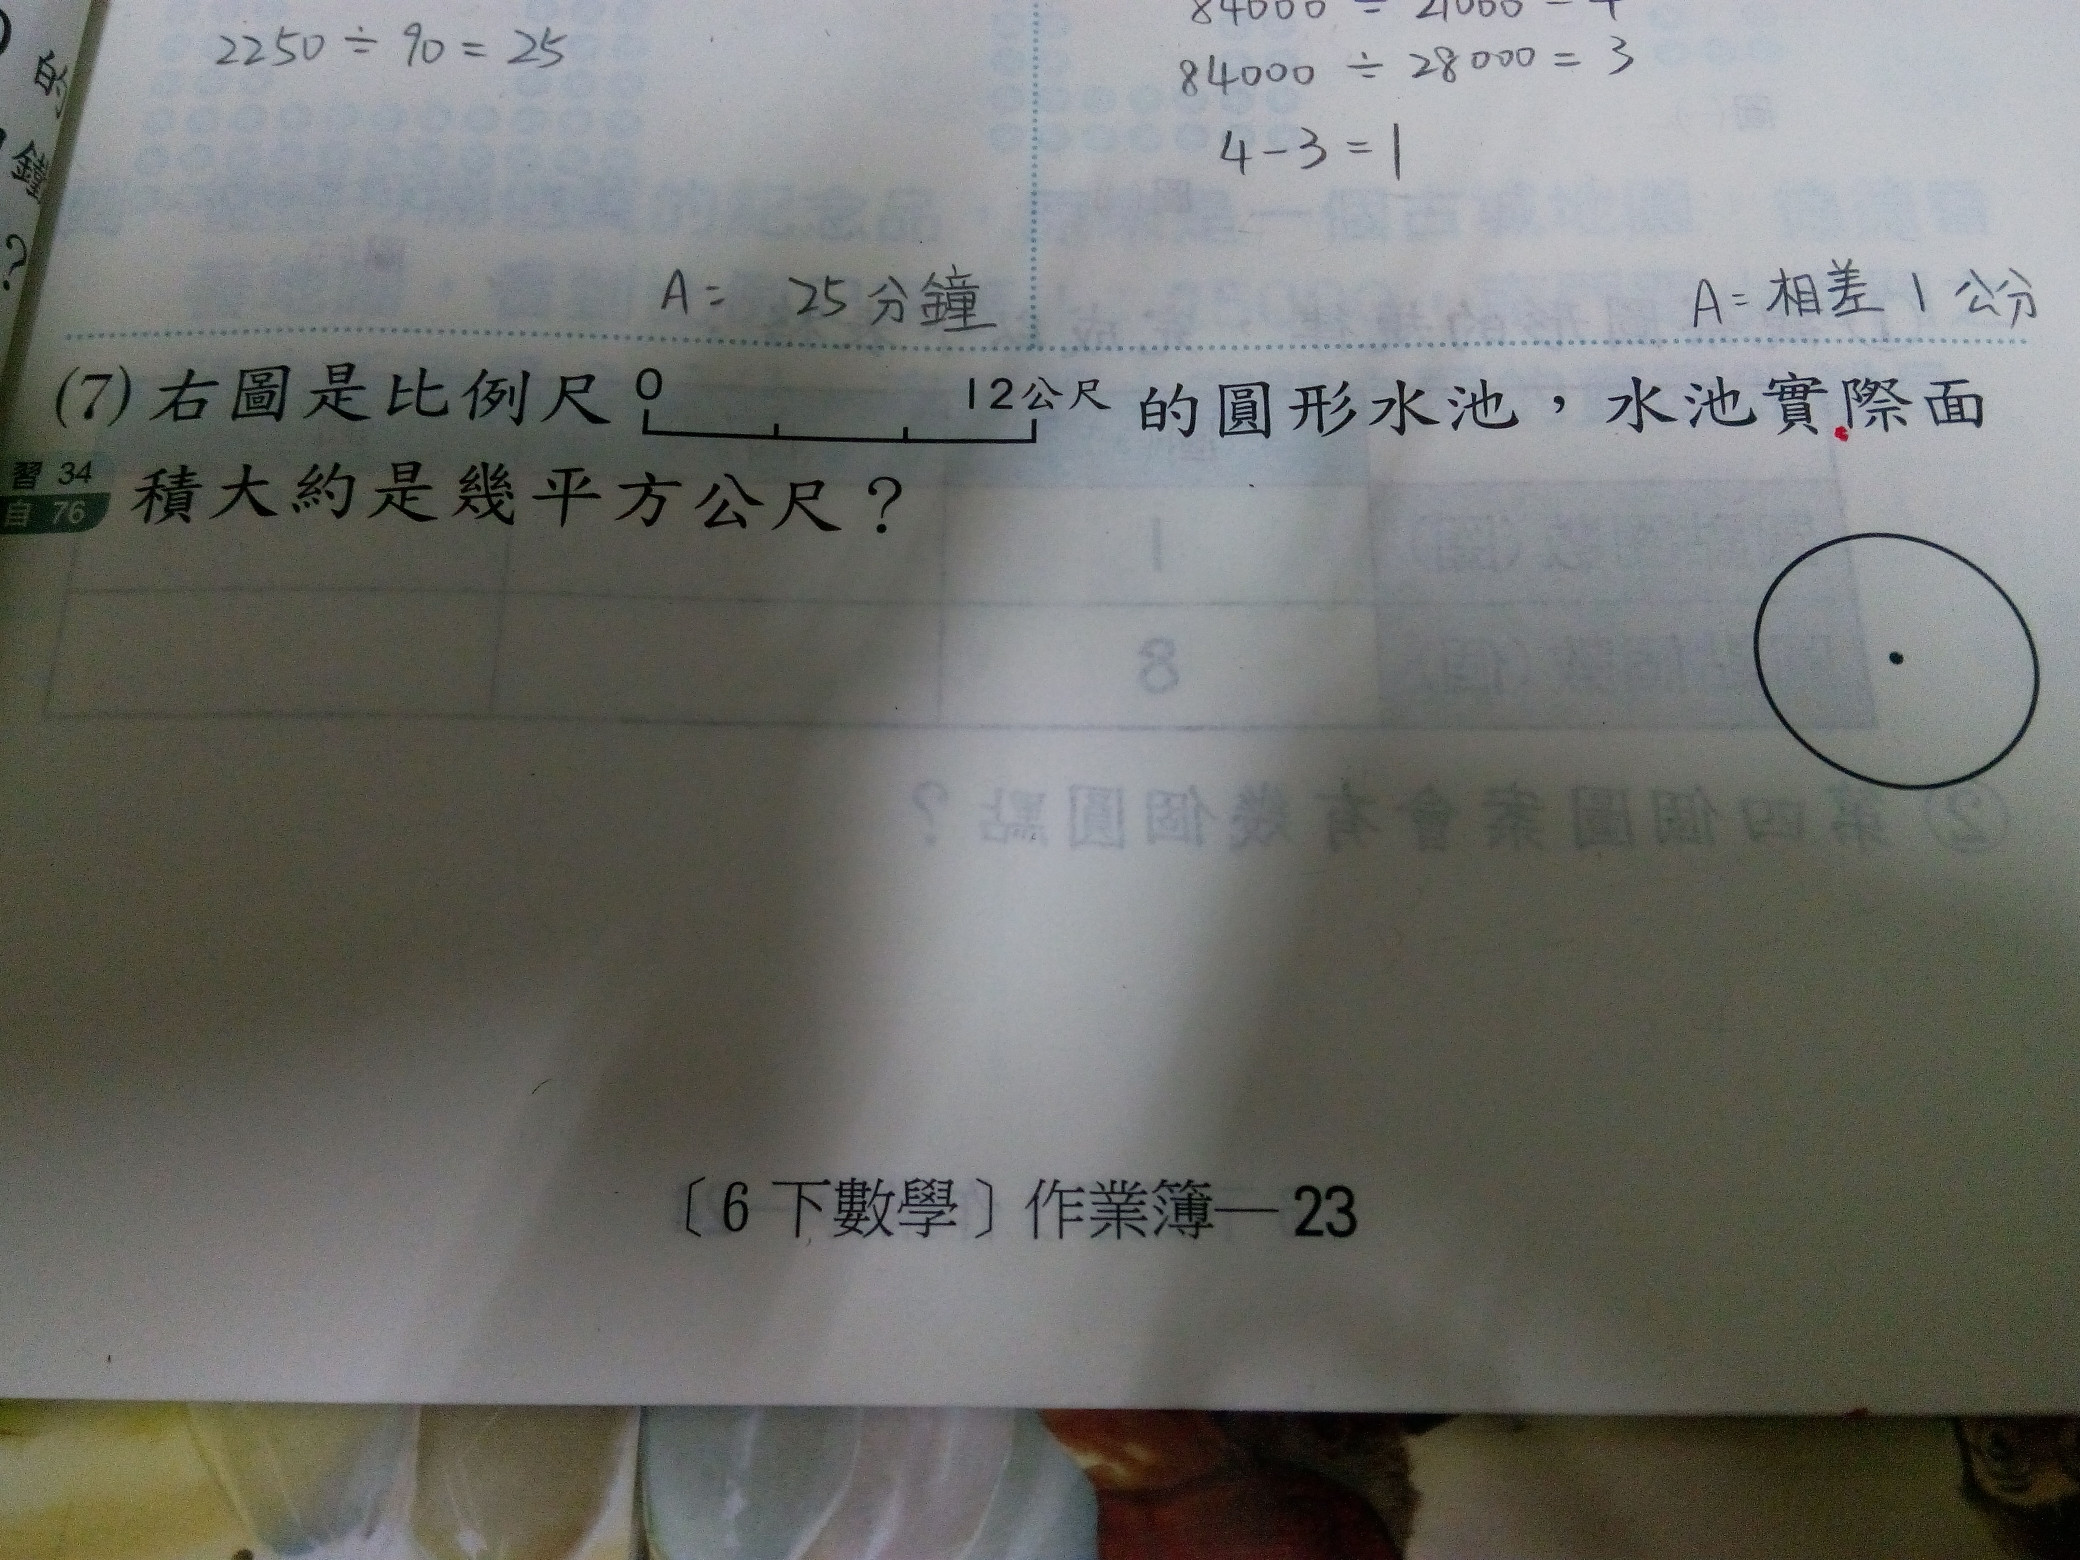 2250 ÷ 90 = 25
84000 ÷ 21000 = 4
84000 ÷ 28000 = 3
4 - 3 = 1
A = 25分鐘
A = 相差 1 公分
(7) 右圖是比例尺 0 12公尺 的圓形水池，水池實際面
習 34
自 76
積大約是幾平方公尺？
〔6下數學〕作業簿—23